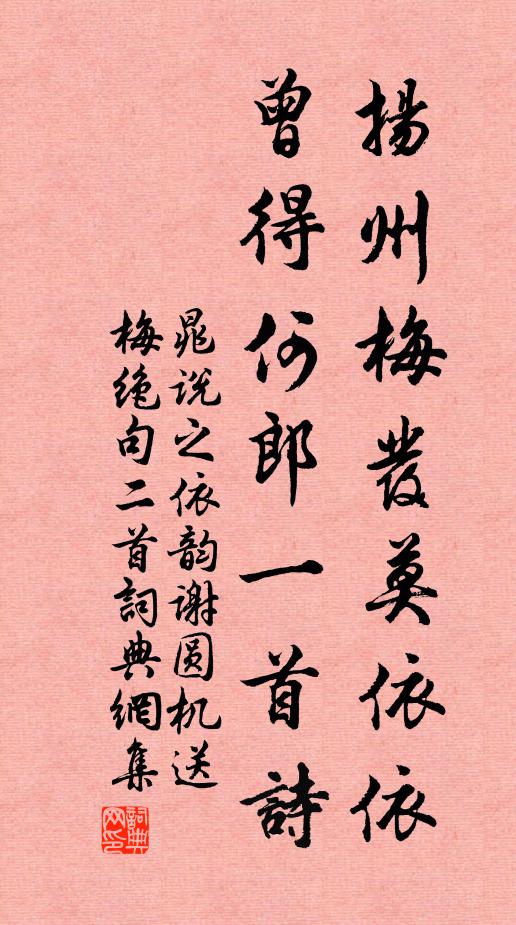 揚州梅發莫依依
曾得何郎一首詩
晁说之依韵谢圆机送
梅绝句二首詞典網集
詞典网印